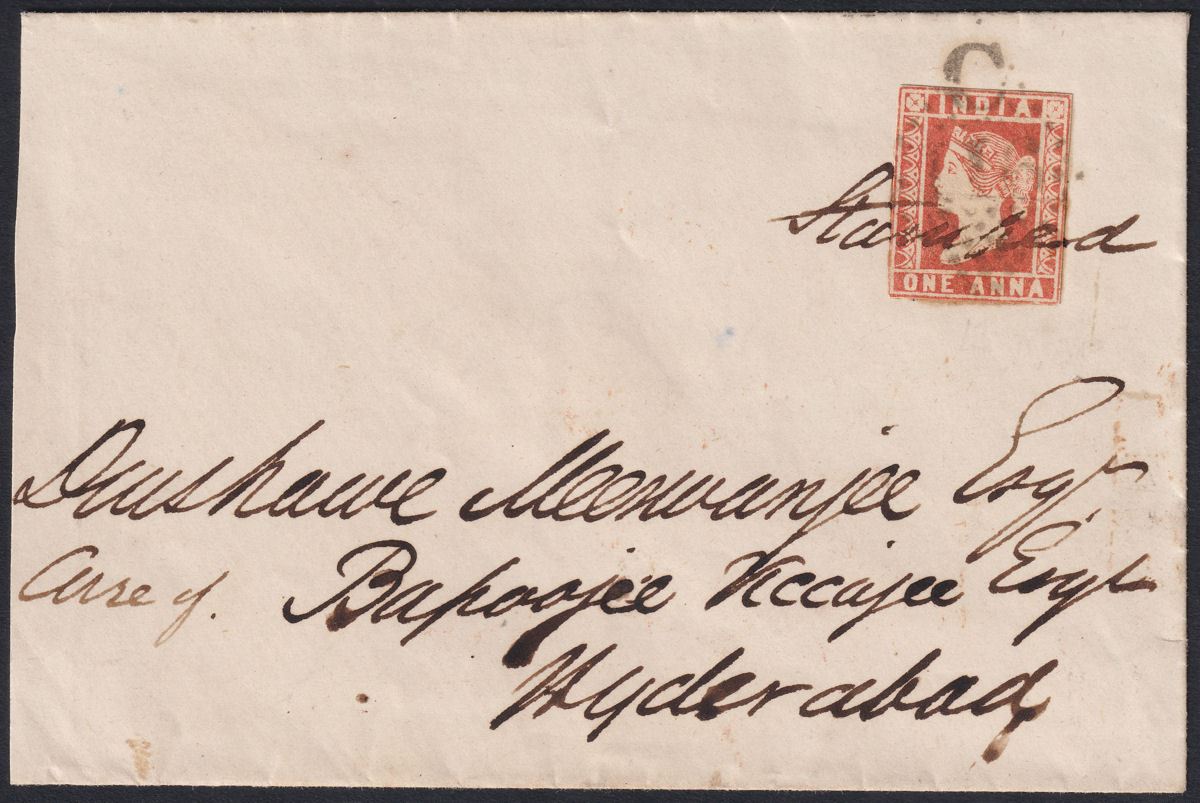 C
INDIA
Stamped
ONE ANNA
Dinshawe Meerwanjee Esqr
Care of. Bapoojee Viccajee Esqr
Hyderabad